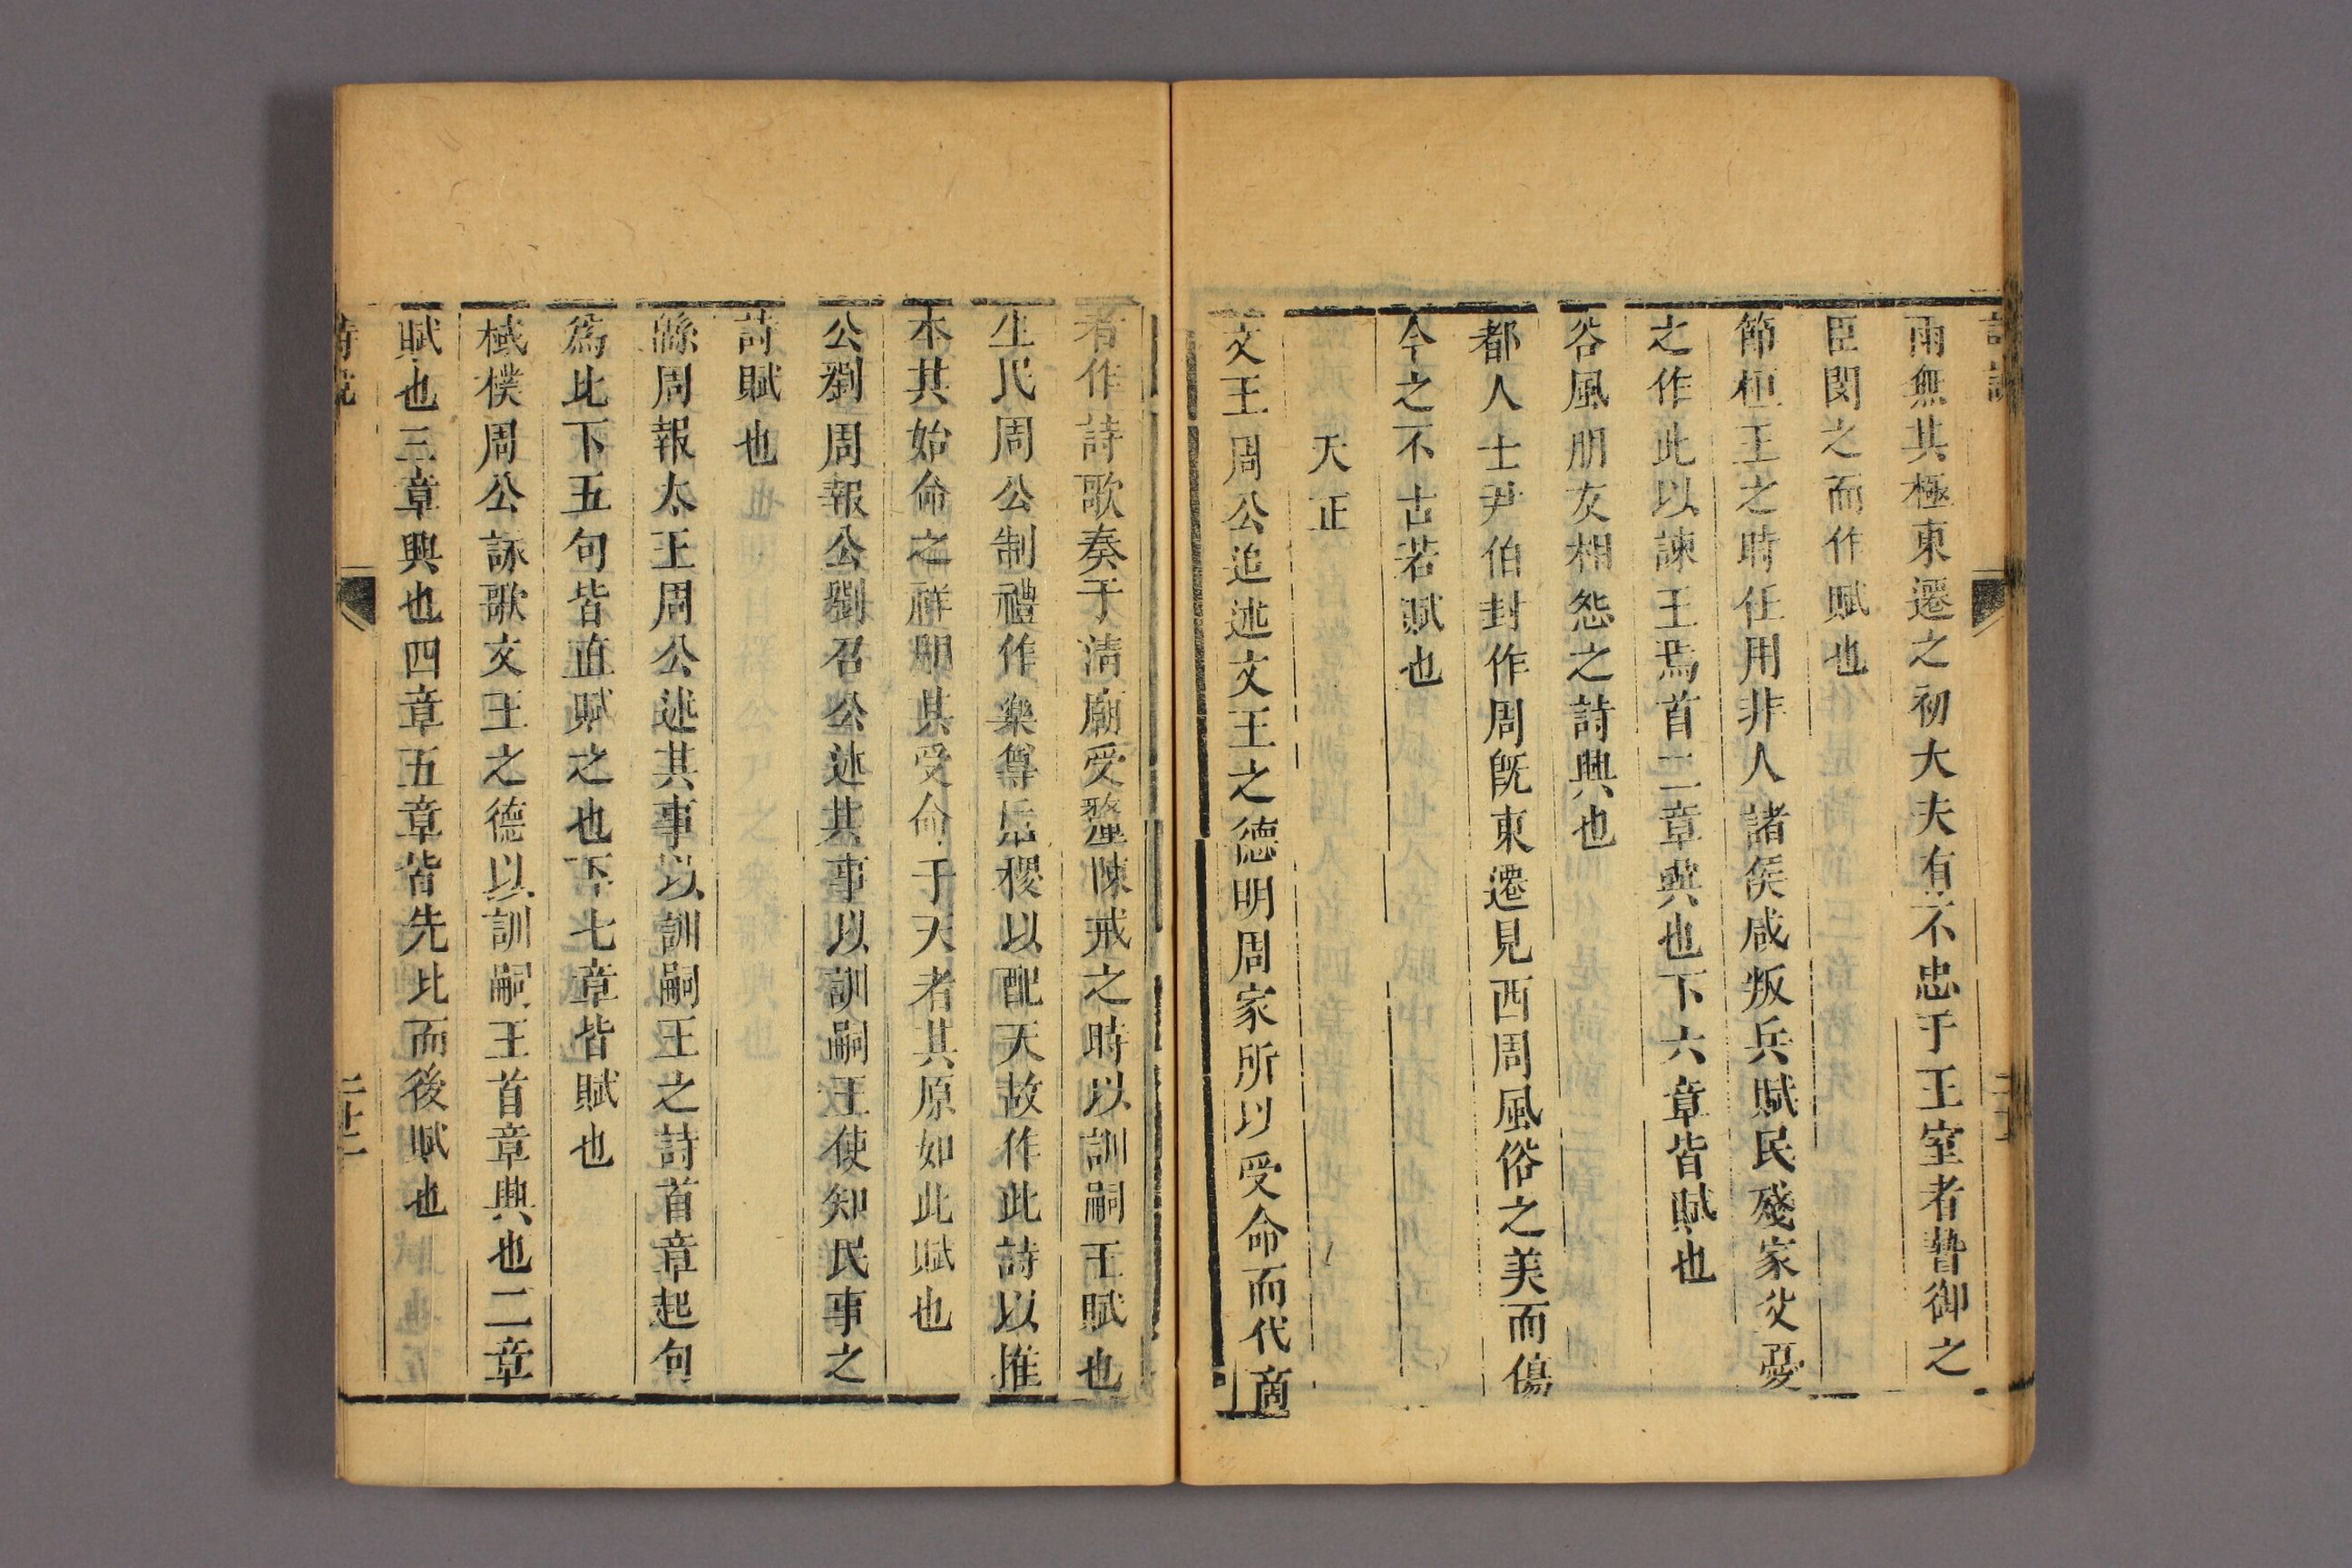 雨無其極東遷之初大夫有不忠于王室者暬御之
臣閔之而作賦也
節桓王之時任用非人諸侯咸叛兵賦民殘家父憂
之作此以諫王焉首二章興也下六章皆賦也
谷風朋友相怨之詩興也
都人士尹伯封作周旣東遷見西周風俗之美而傷
今之不古若賦也
大正
文王周公追述文王之德明周家所以受命而代商
者作詩歌奏于清廟受釐陳戒之時以訓嗣王賦也
生民周公制禮作樂尊后稷以配天故作此詩以推
本其始命之祥明其受命于天者其原如此賦也
公劉周報公劉召公述其事以訓嗣王使知民事之
詩賦也
緜周報太王周公述其事以訓嗣王之詩首章起句
爲比下五句皆直賦之也下七章皆賦也
棫樸周公詠歌文王之德以訓嗣王首章興也二章
賦也三章興也四章五章皆先比而後賦也
詩說
二十二